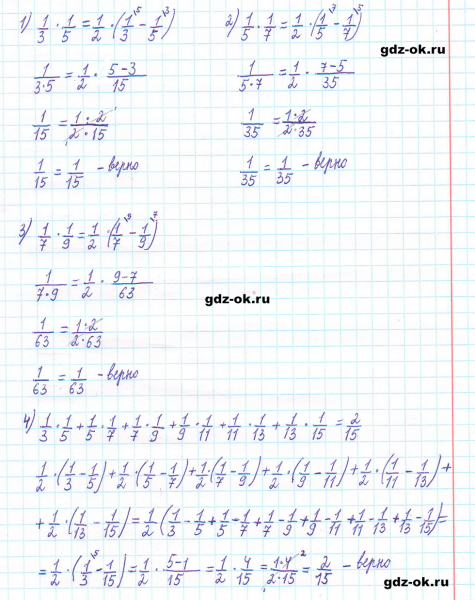 1) 1/3 · 1/5 = 1/2 · (1/3 \5 − 1/5 \3)
1/(3·5) = 1/2 · (5−3)/15
1/15 = (1·2)/(2·15)
1/15 = 1/15 – верно
2) 1/5 · 1/7 = 1/2 · (1/5 \7 − 1/7 \5)
gdz-ok.ru
1/(5·7) = 1/2 · (7−5)/35
1/35 = (1·2)/(2·35)
1/35 = 1/35 – верно
3) 1/7 · 1/9 = 1/2 · (1/7 \9 − 1/9 \7)
1/(7·9) = 1/2 · (9−7)/63
gdz-ok.ru
1/63 = (1·2)/(2·63)
1/63 = 1/63 – верно
4) 1/3 · 1/5 + 1/5 · 1/7 + 1/7 · 1/9 + 1/9 · 1/11 + 1/11 · 1/13 + 1/13 · 1/15 = 2/15
1/2 · (1/3 − 1/5) + 1/2 · (1/5 − 1/7) + 1/2 · (1/7 − 1/9) + 1/2 · (1/9 − 1/11) + 1/2 · (1/11 − 1/13) +
+ 1/2 · (1/13 − 1/15) = 1/2 · (1/3 − 1/5 + 1/5 − 1/7 + 1/7 − 1/9 + 1/9 − 1/11 + 1/11 − 1/13 + 1/13 − 1/15) =
= 1/2 · (1/3 \5 − 1/15) = 1/2 · (5−1)/15 = 1/2 · 4/15 = (1·4 2)/(2·15) = 2/15 – верно
gdz-ok.ru